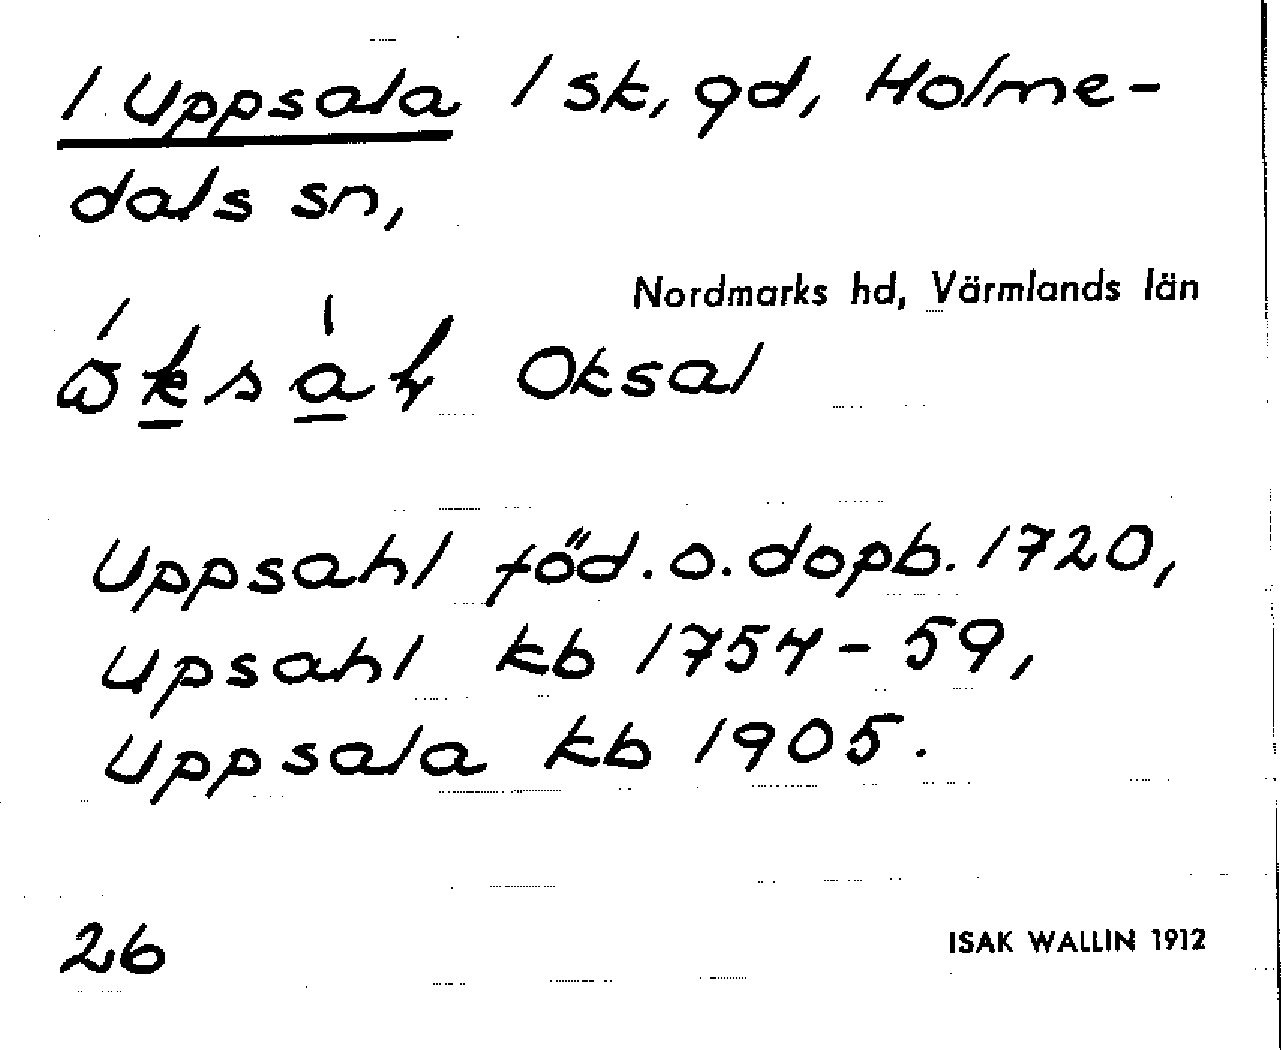 1 Uppsala 1 sk, gd, Holme-
dals sn,
Nordmarks hd, Värmlands län
Oksal
Uppsahl föd. o. dopb. 1720,
Upsahl kb 1754-59,
Uppsala kb 1905.
26
ISAK WALLIN 1912